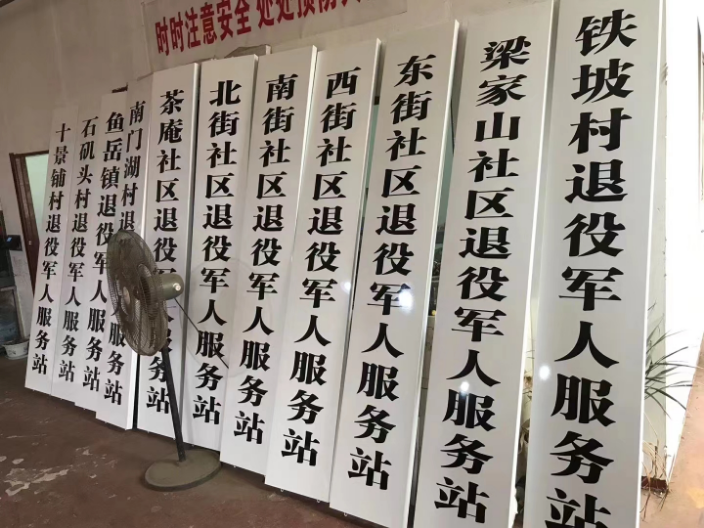 时时注意安全 处处预防
铁坡村退役军人服务站
梁家山社区退役军人服务站
东街社区退役军人服务站
西街社区退役军人服务站
南街社区退役军人服务站
北街社区退役军人服务站
茶庵社区退役军人服务站
南门湖村退役军人服务站
鱼岳镇退役军人服务站
石矶头村退役军人服务站
十景铺村退役军人服务站